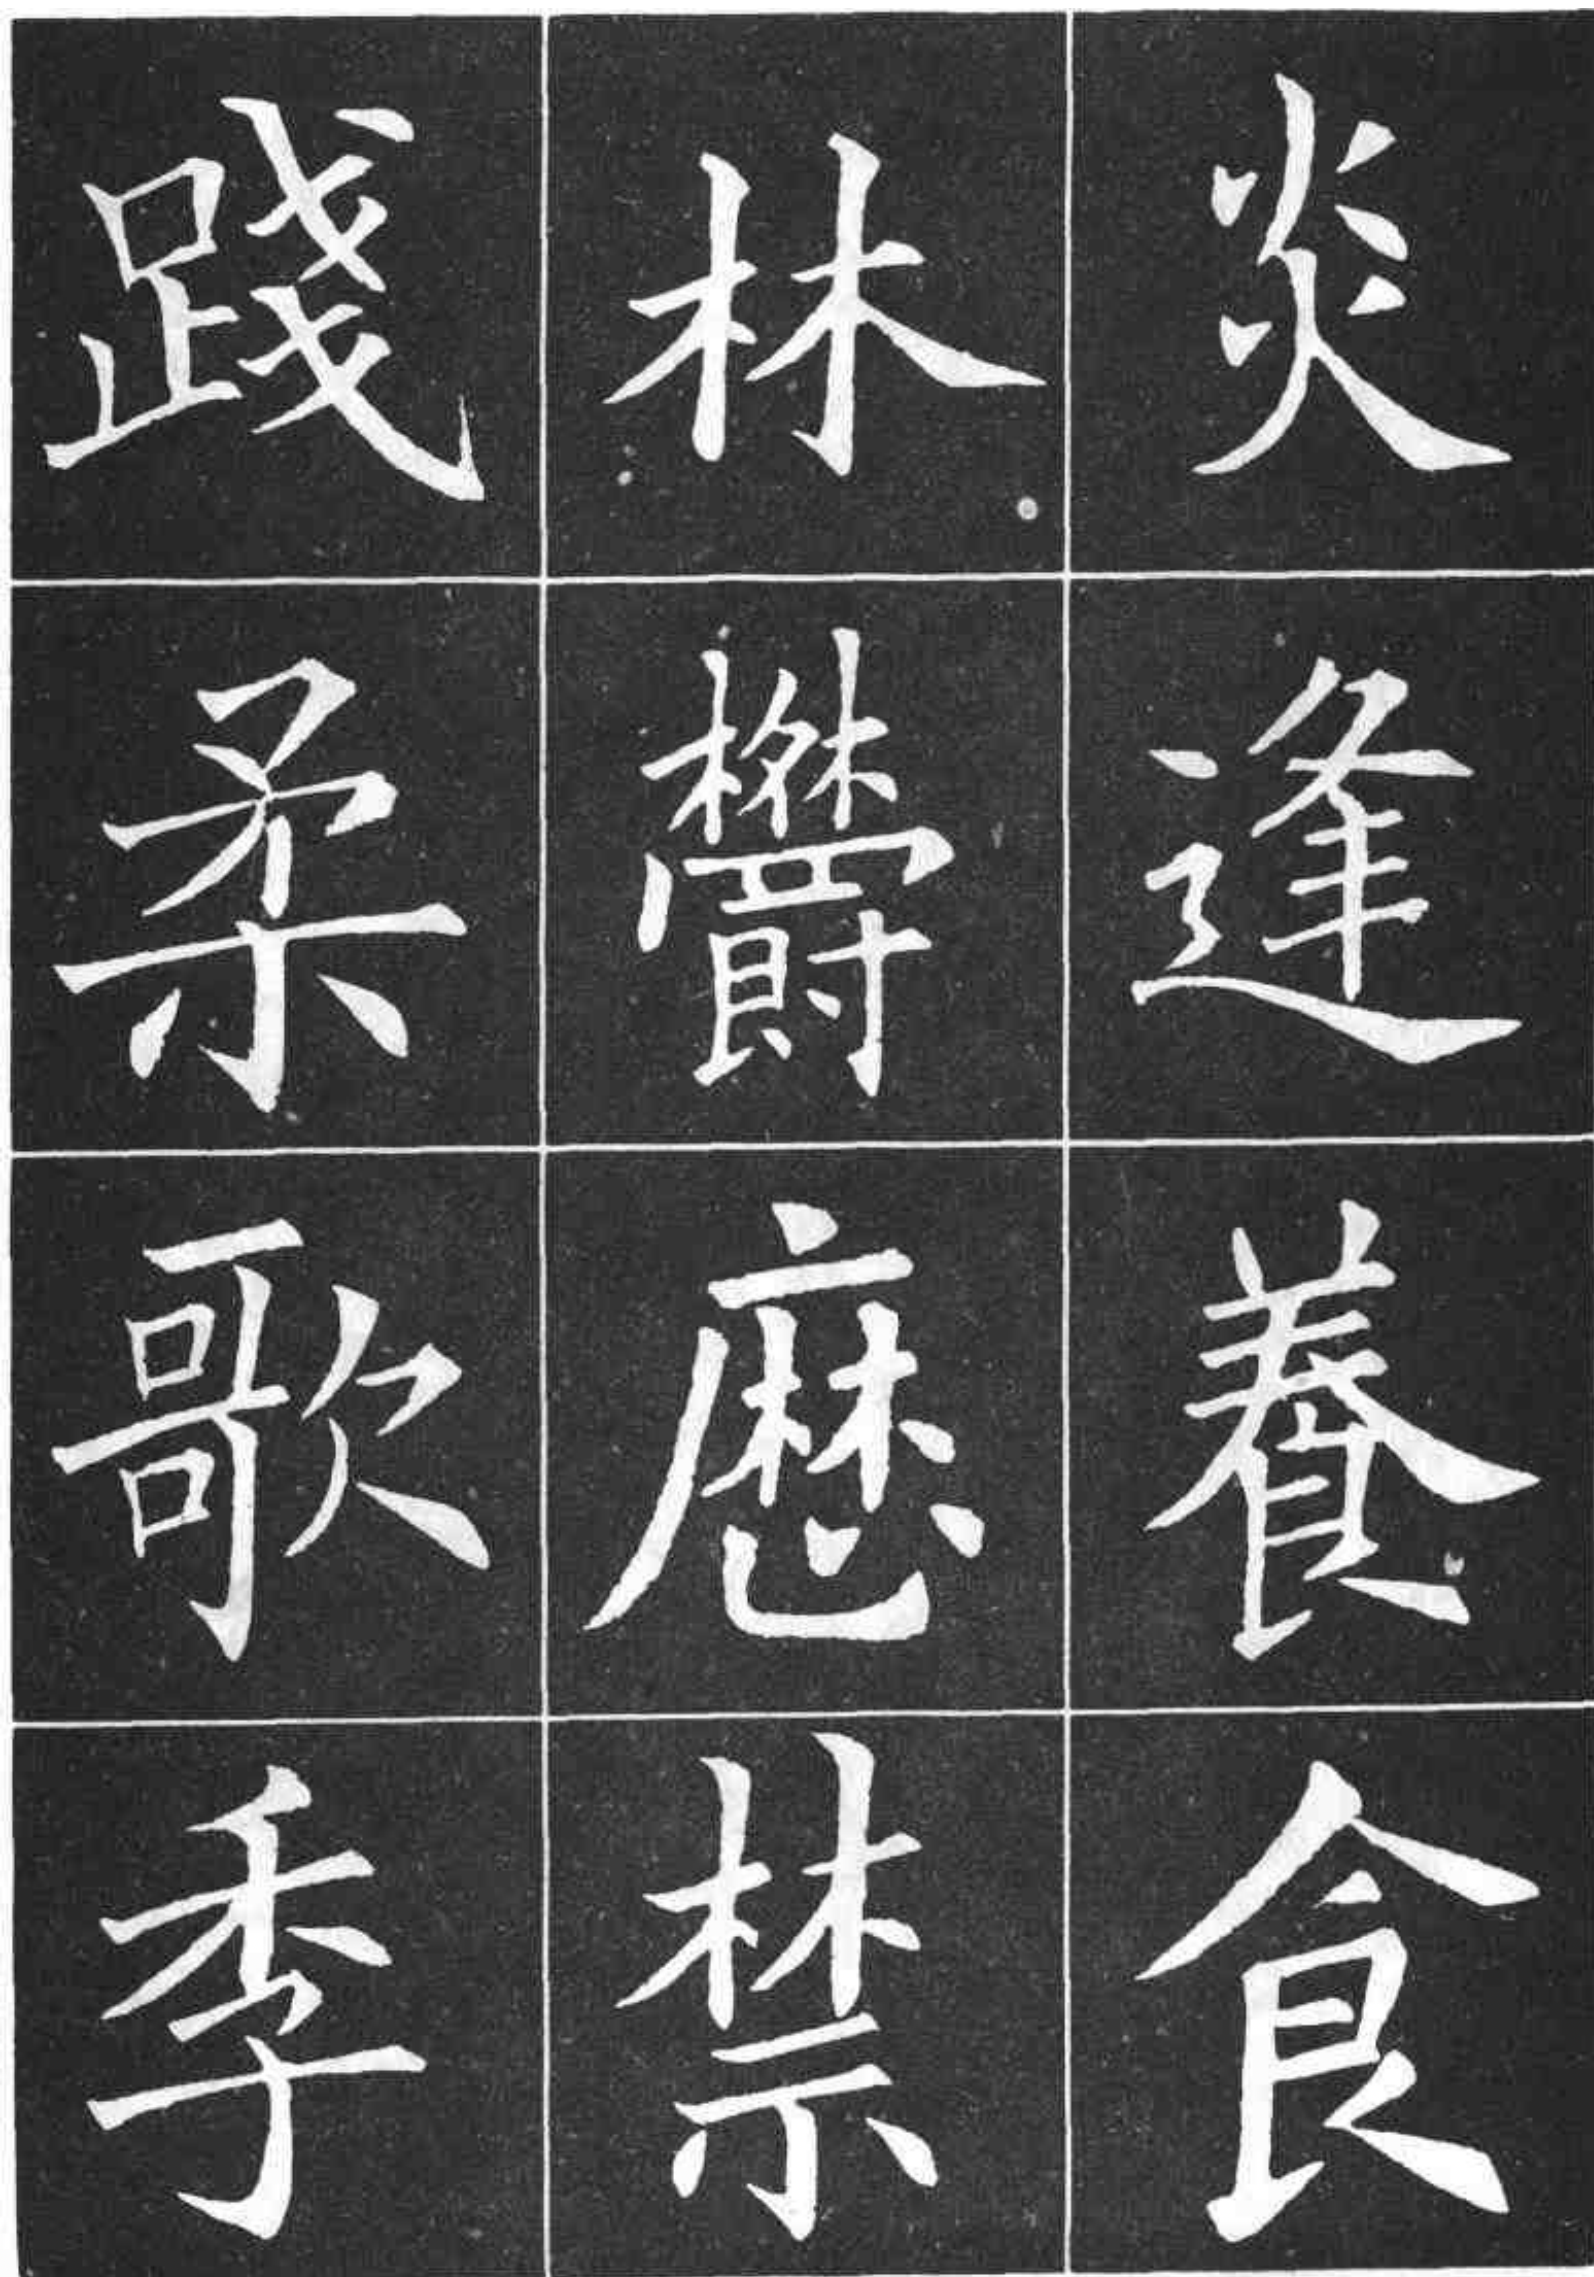 炎逢養食
林欎禁
踐柔歌季